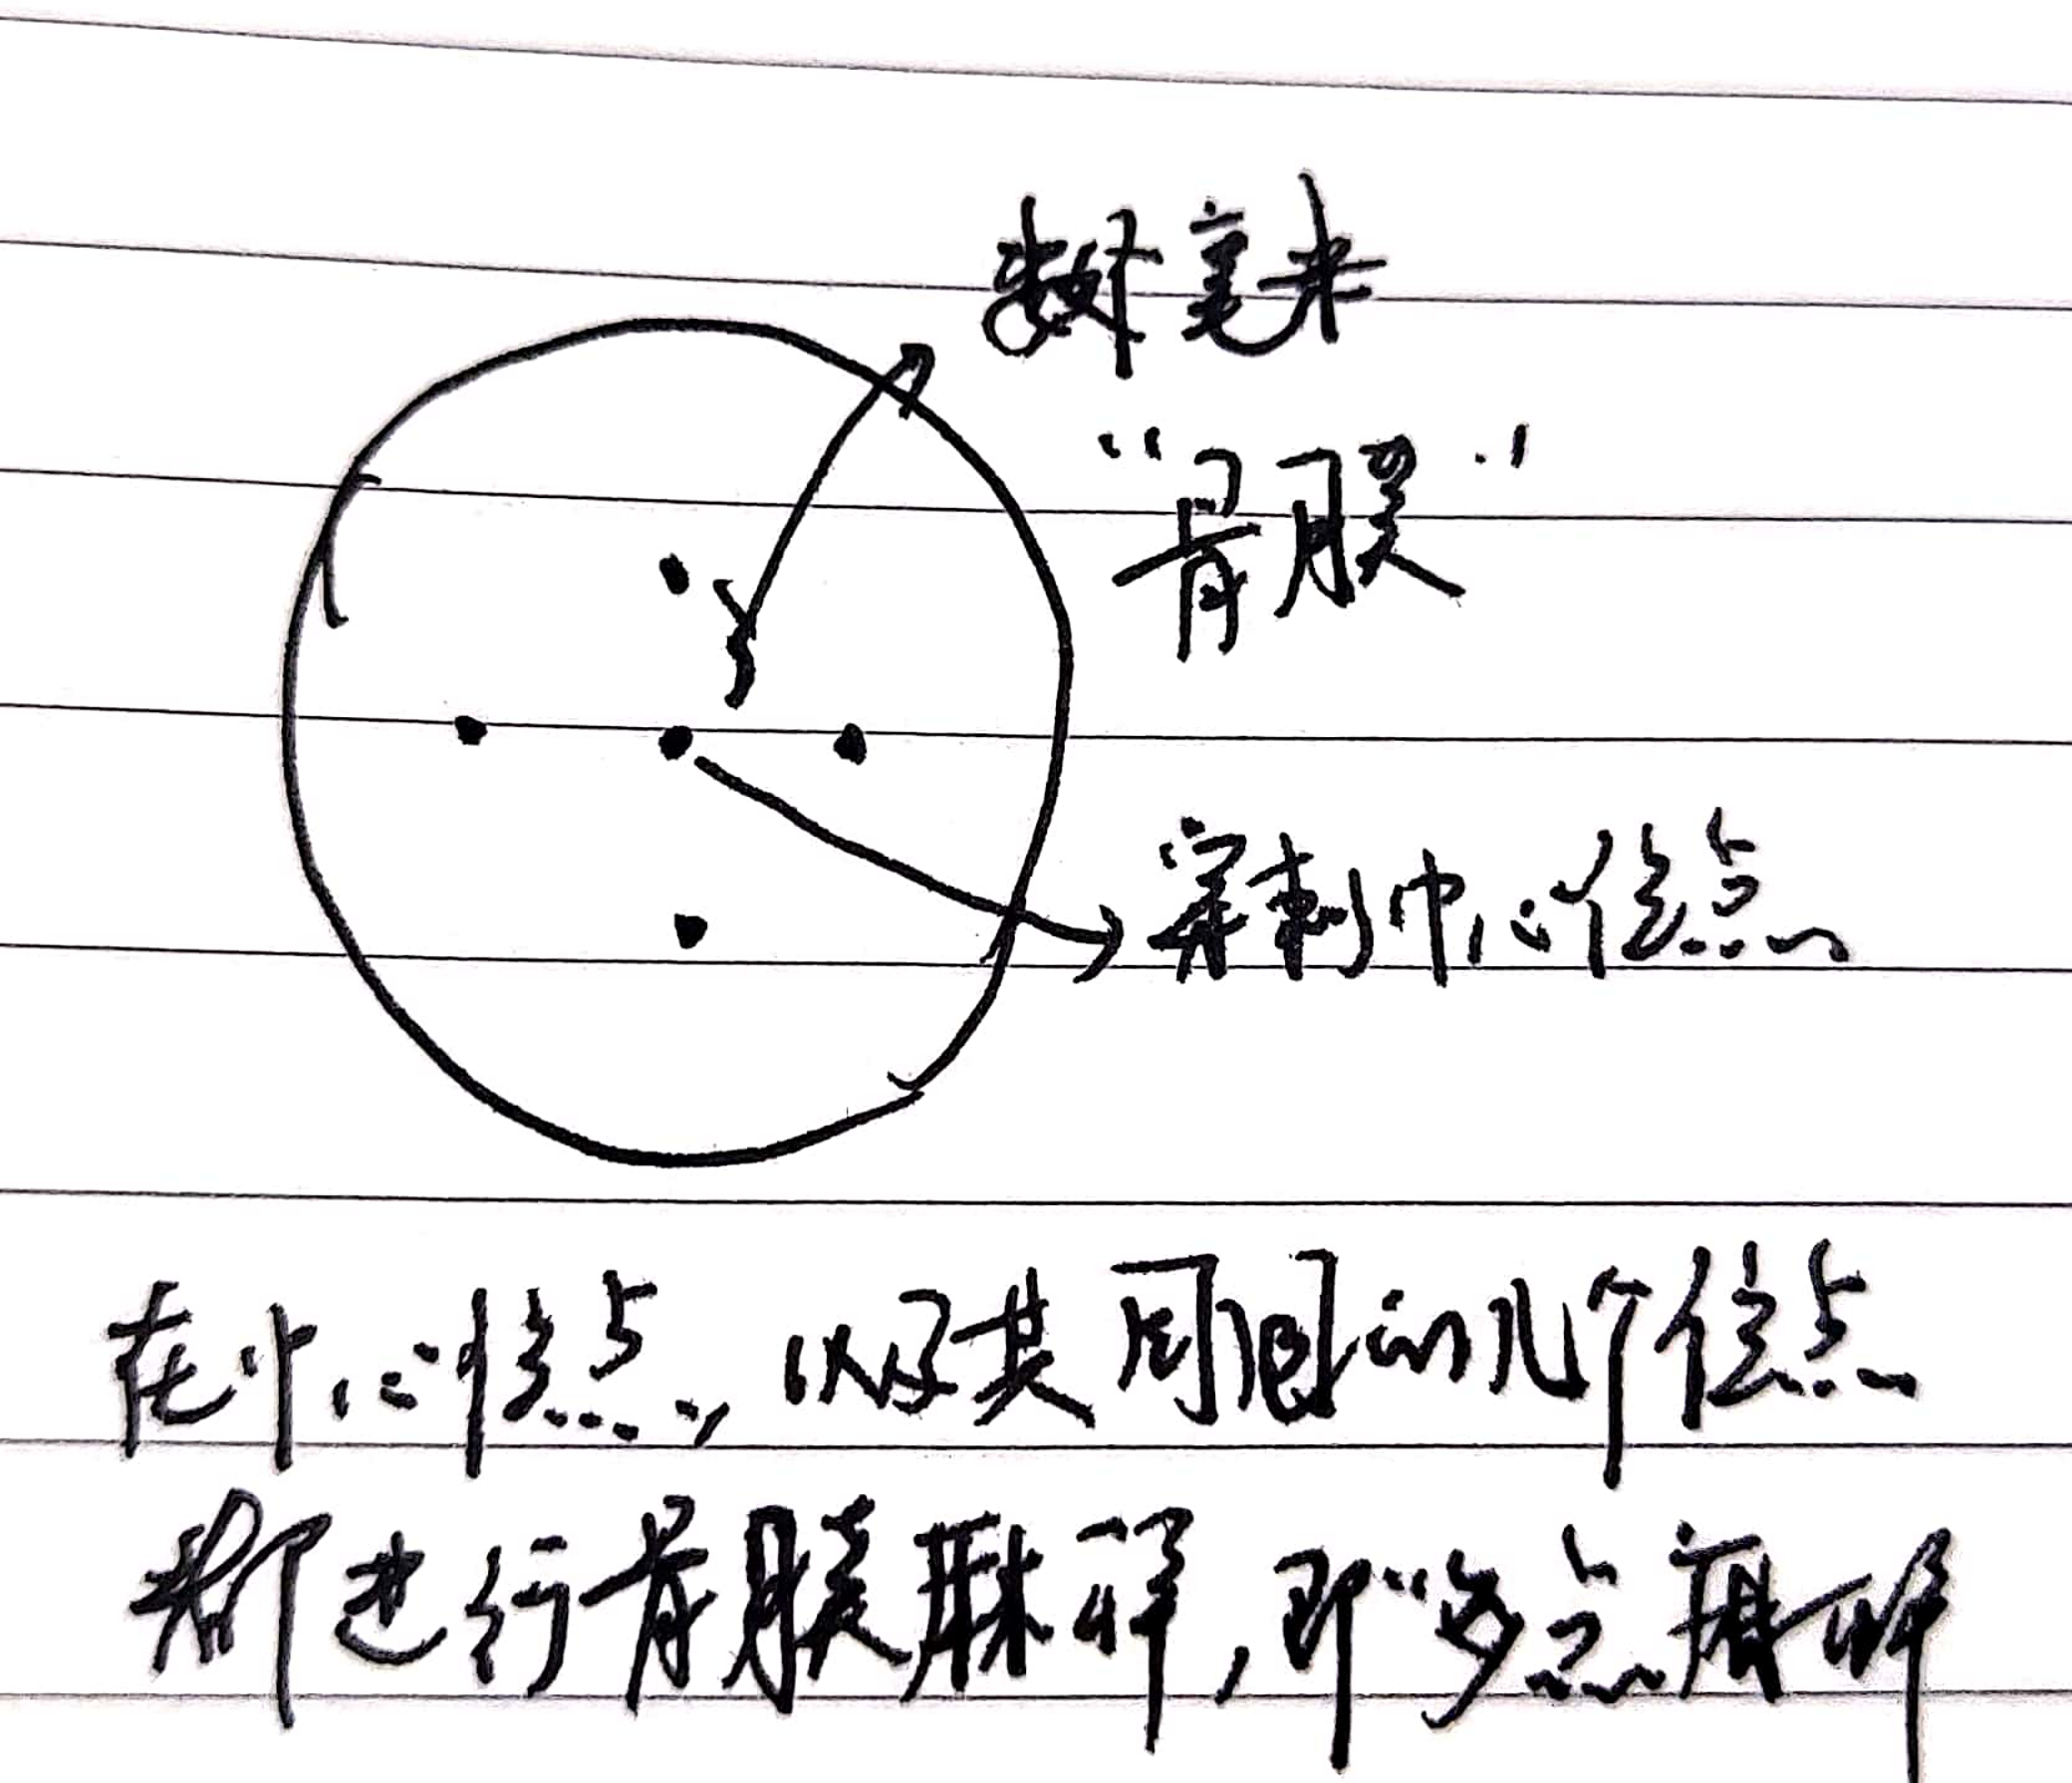 数毫米
“骨膜”
穿刺中心位点
在中心位点,以及其周围的几个位点
都进行骨膜麻醉,即“多点麻醉